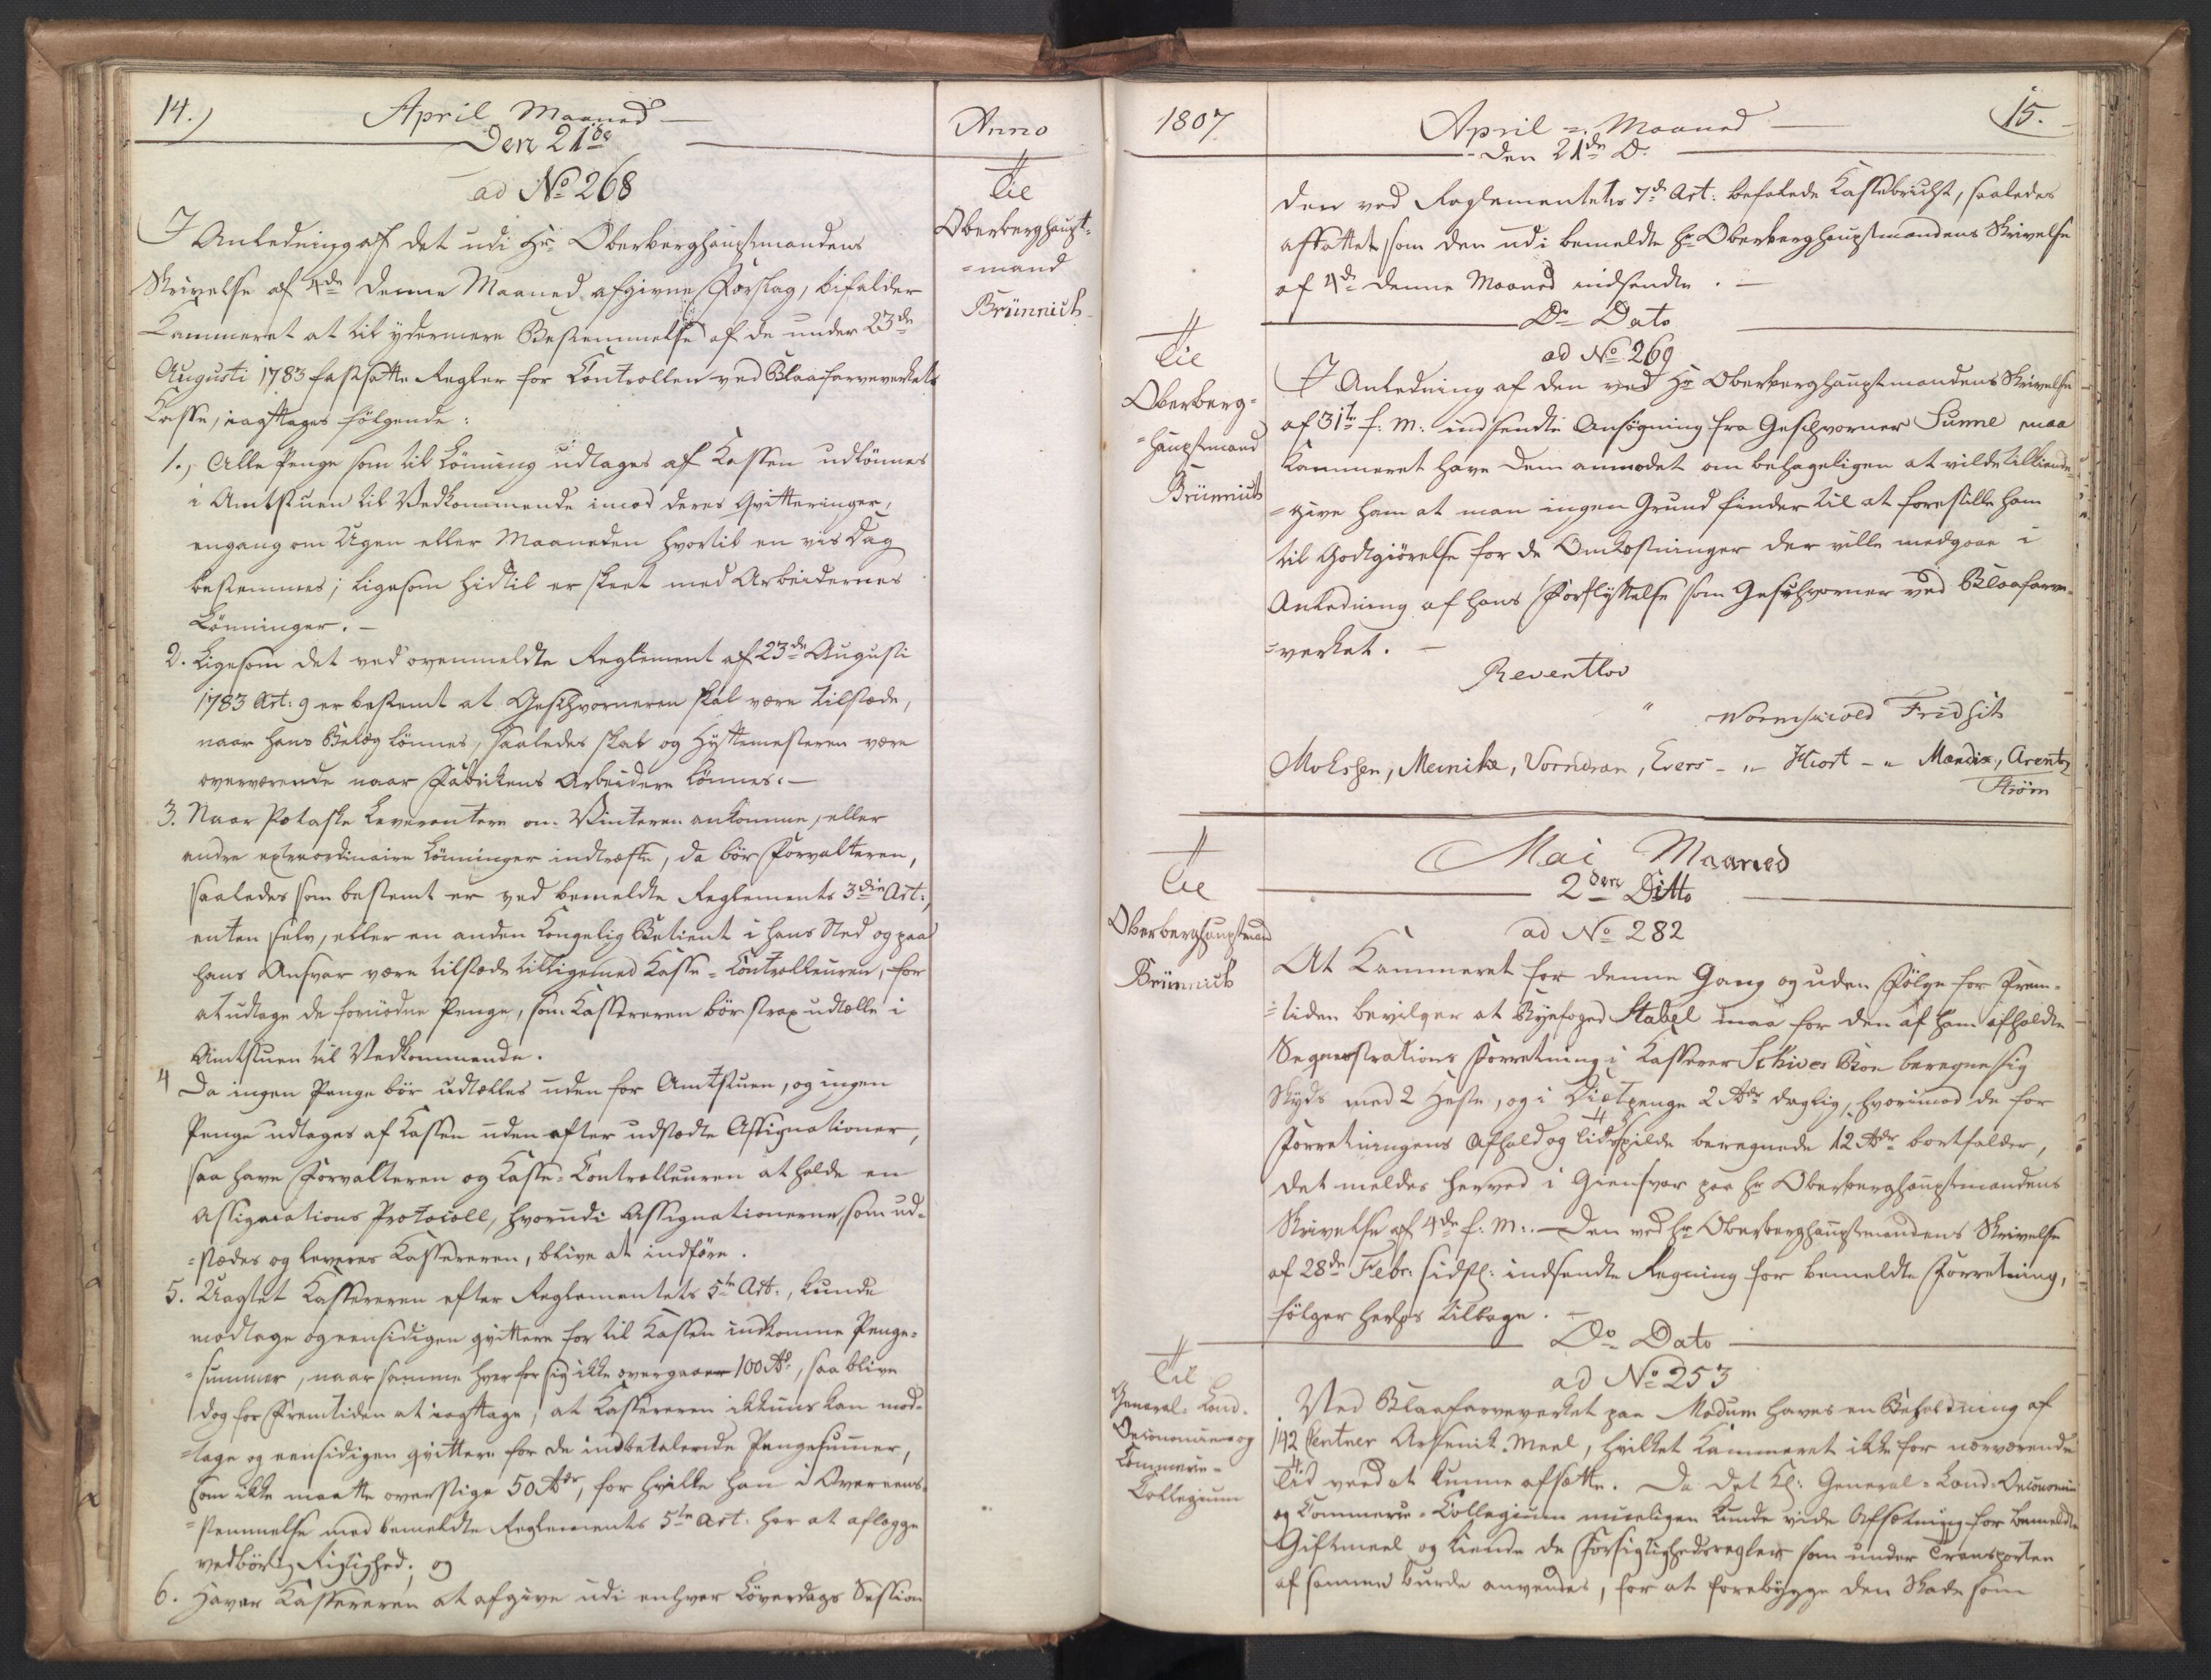 14.)
April Maaned
Den 21de
Anno
ad No 268
Til
Oberberghaupt-
=mand
Brünnich
I Anledning af det udi Hr. Oberberghauptmandens
Skrivelse af 4de denne Maaned afgivne Forslag, bifalder
Kammeret at til ydermere Bestemmelse af de under 23de
Augusti 1783 fastsatte Regler for Controllen ved Blaafarveverkets
Casse, iagttages følgende:
1., Alle Penge som til Lönning udtages af Kassen udlönnes
i Amtstuen til Vedkommende imod deres Qvitteringer,
engang om Ugen eller Maaneden hvortil en vis Dag
bestemmes; ligesom hidtil er skeet med Arbeidernes
Lönninger. —
2. Ligesom det ved ovenmeldte Reglement af 23de Augusti
1783 Art: 9 er bestemt at Geschvorneren skal være tilstæde,
naar hans Belæg lönnes, saaledes skal og Hyttemesteren være
overværende naar Fabrikens Arbeidere lönnes. —
3. Naar Potaske Leverantere om Vinteren ankomme, eller
andre extraordinaire Lönninger indtræffe, da bör Forvalteren,
saaledes som bestemt er ved bemeldte Reglements 3die Art:,
enten selv, eller en anden Kongelig Betient i hans Sted og paa
hans Ansvar være tilstæde tilligemed Kasse-Controlleuren, for
at udtage de fornödne Penge, som Kassereren bör strax udtælle i
Amtstuen til Vedkommende.
4 Da ingen Penge bör udtælles uden for Amtstuen, og ingen
Penge udtages af Kassen uden efter udstædte Assignationer,
saa have Forvalteren og Kasse-Controlleuren at holde en
Assignations Protocoll, hvorudi Assignationerne, som ud-
=stædes og leveres Kassereren, blive at indföre.
5. Uagtet Kassereren efter Reglementets 5te Art:, kunde
modtage og eensidigen qvittere for til Kassen indkomne Penge-
=summer, naar samme hver for sig ikke overgaaer 100 Rd., saa blive
dog for Fremtiden at iagttage, at Kassereren ikkuns kan mod-
=tage og eensidigen qvittere for de indbetalende Pengesummer,
som ikke maatte overstige 50 Rdr, for hvilke han i Overeens-
=stemmelse med bemeldte Reglements 5te Art: har at aflægge
vedbörlig Rigtighed; og
6. Haver Kassereren at afgive udi enhver Löverdags Session
1807
April = Maaned
15.
den 21de D.
den ved Reglementets 7de Art: befalede Kassebericht, saaledes
affattet som den udi bemeldte Hr Oberberghauptmandens Skrivelse
af 4de denne Maaned indsendte. —
Do Dato
Til
Oberberg-
=hauptmand
Brünnich
ad No 269
I Anledning af den ved Hr Oberberghauptmandens Skrivelse
af 31te f: M: indsendte Ansögning fra Geschvorner Sunne maa
Kammeret have Dem anmodet om behageligen at vilde tilkiende-
=give ham at man ingen Grund finder til at forestille ham
til Godtgiörelse for de Omkostninger der ville medgaae i
Anledning af hans Forflyttelse som Geschvorner ved Blaafarve-
=verket. —
Reventlov
" Wormskiold Fridsch
Molssen, Meinike, Vorndran, Evers - " Hiort - " Mandix, Arentz
Strøm
Mai Maaned
2den Ditto
Til
Oberberghauptmand
Brünnich
ad No 282
At Kammeret for denne Gang og uden Fölge for Frem-
=tiden bevilger at Byefoged Stabel maa for den af ham afholdte
Seqvestrations Forretning i Kasserer Schives Boe beregne sig
Skyds med 2 Heste, og i Diætpenge 2 Rdr daglig, hvorimod de for
Forretningens Afhold og Tidsspilde beregnede 12 Rdr bortfalder,
det meldes herved i Giensvar paa Hr Oberberghauptmandens
Skrivelse af 4de f: M:. — Den ved Hr Oberberghauptmandens Skrivelse
af 28de Febr: sidstl: indsendte Regning for bemeldte Forretning,
fölger herhos tilbage. —
Do Dato
Til
General-Land-
Oeconomie og
Commerce-
Collegium
ad No 253
Ved Blaafarveverket paa Modum haves en Beholdning af
142 Centner Arsenik-Meel, hvilket Kammeret ikke for nærværende
Tid veed at kunne afsætte. Da det Kl: General-Land-Oeconomie
og Commerce-Collegium mueligen kunde vide Afsætning for bemeldte
Giftmeel og kiende de Forsigtighedsregler som under Transporten
af samme burde anvendes, for at forebygge den Skade som